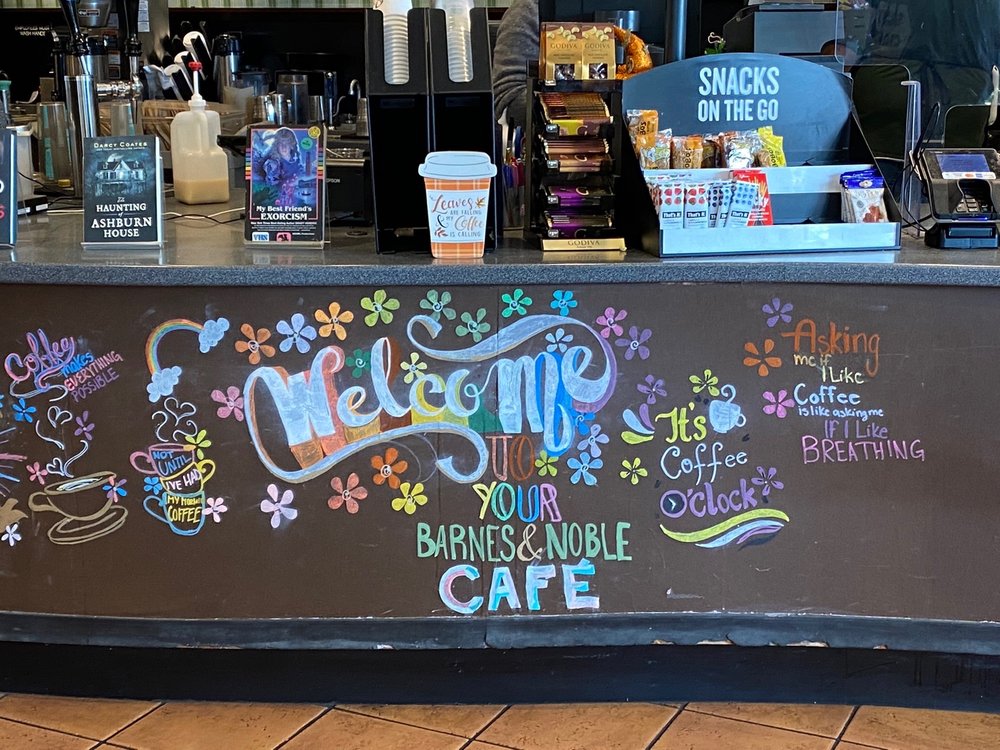 EMPLOYEES MUST
WASH HANDS
DARCY COATES
The
HAUNTING
of
ASHBURN
HOUSE
My Best Friend's
EXORCISM
VHS
Leaves
ARE FALLING
Coffee
IS CALLING
GODIVA
GODIVA
GODIVA
SNACKS
ON THE GO
That's it.
That's it.
That's it.
Coffee
MAKES
EVERYTHING
POSSIBLE
NOT
UNTIL
I'VE HAD
MY MORNING
COFFEE
Welcome
TO
YOUR
BARNES & NOBLE
CAFÉ
It's
Coffee
O'clock
Asking
me if
I Like
Coffee
is like asking me
IF I Like
BREATHING